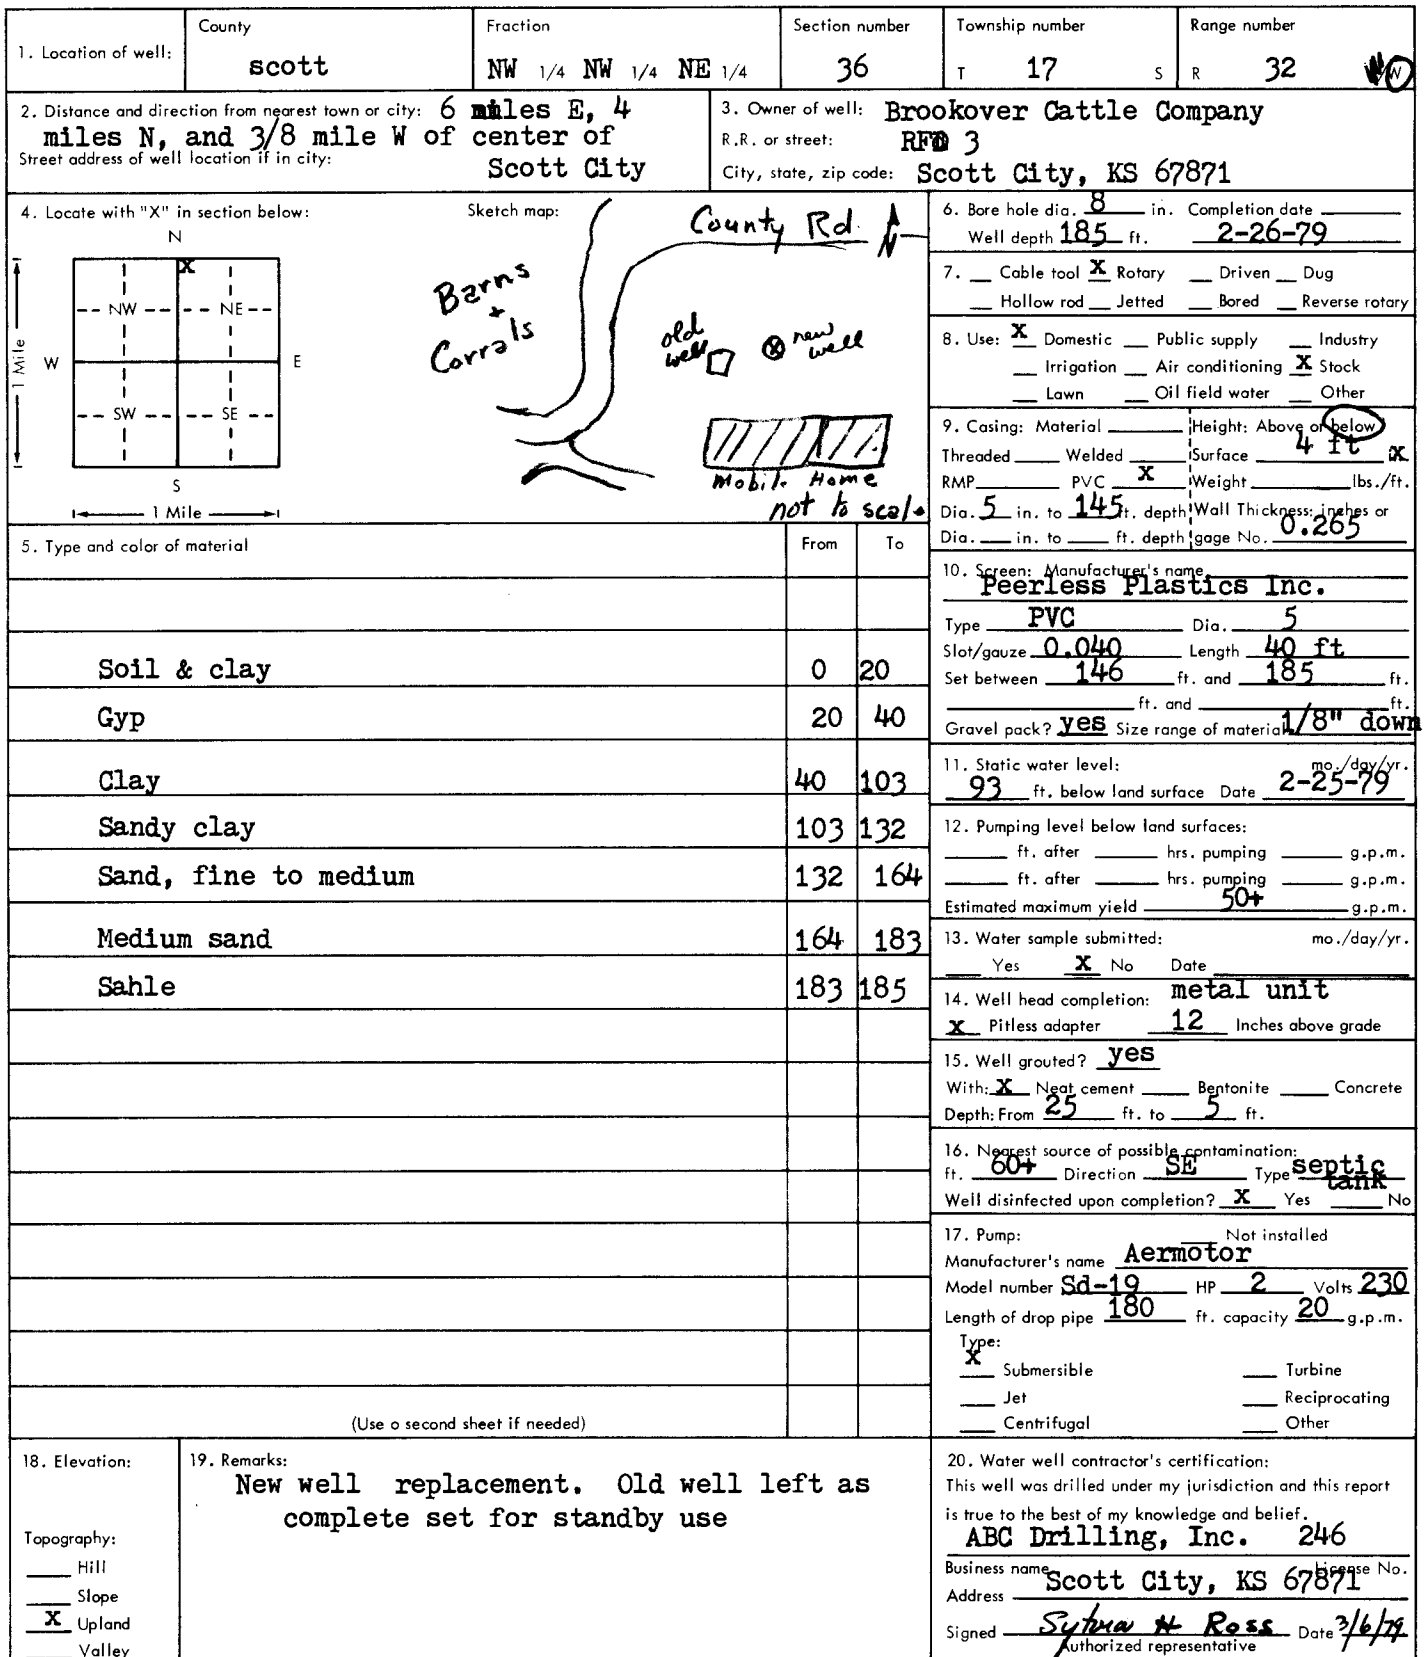 County Fraction Section number Township number Range number
1. Location of well: scott NW 1/4 NW 1/4 NE 1/4 36 T 17 S R 32 W
2. Distance and direction from nearest town or city: 6 miles E, 4
miles N, and 3/8 mile W of center of
Street address of well location if in city: Scott City
3. Owner of well: Brookover Cattle Company
R.R. or street: RFD 3
City, state, zip code: Scott City, KS 67871
4. Locate with "X" in section below:
N
X
NW NE
W E
SW SE
S
1 Mile
1 Mile
Sketch map:
County Rd. N
Barns
+
Corrals
old well
new well
Mobile Home
not to scale
5. Type and color of material From To
Soil & clay 0 20
Gyp 20 40
Clay 40 103
Sandy clay 103 132
Sand, fine to medium 132 164
Medium sand 164 183
Sahle 183 185
(Use a second sheet if needed)
6. Bore hole dia. 8 in. Completion date
Well depth 185 ft. 2-26-79
7. Cable tool X Rotary Driven Dug
Hollow rod Jetted Bored Reverse rotary
8. Use: X Domestic Public supply Industry
Irrigation Air conditioning X Stock
Lawn Oil field water Other
9. Casing: Material Height: Above or below
Threaded Welded Surface 4 ft X
RMP PVC X Weight lbs./ft.
Dia. 5 in. to 145 ft. depth Wall Thickness: inches or
Dia. in. to ft. depth gage No. 0.265
10. Screen: Manufacturer's name
Peerless Plastics Inc.
Type PVC Dia. 5
Slot/gauze 0.040 Length 40 ft
Set between 146 ft. and 185 ft.
ft. and ft.
Gravel pack? yes Size range of material 1/8" down
11. Static water level: mo./day/yr.
93 ft. below land surface Date 2-25-79
12. Pumping level below land surfaces:
ft. after hrs. pumping g.p.m.
ft. after hrs. pumping g.p.m.
Estimated maximum yield 50+ g.p.m.
13. Water sample submitted: mo./day/yr.
Yes X No Date
14. Well head completion: metal unit
X Pitless adapter 12 Inches above grade
15. Well grouted? yes
With: X Neat cement Bentonite Concrete
Depth: From 25 ft. to 5 ft.
16. Nearest source of possible contamination:
ft. 60+ Direction SE Type septic tank
Well disinfected upon completion? X Yes No
17. Pump: Not installed
Manufacturer's name Aermotor
Model number Sd-19 HP 2 Volts 230
Length of drop pipe 180 ft. capacity 20 g.p.m.
Type:
X Submersible Turbine
Jet Reciprocating
Centrifugal Other
18. Elevation:
Topography:
Hill
Slope
X Upland
Valley
19. Remarks:
New well replacement. Old well left as
complete set for standby use
20. Water well contractor's certification:
This well was drilled under my jurisdiction and this report
is true to the best of my knowledge and belief.
ABC Drilling, Inc. 246
Business name License No.
Address Scott City, KS 67871
Signed H Ross Date 3/6/79
Authorized representative